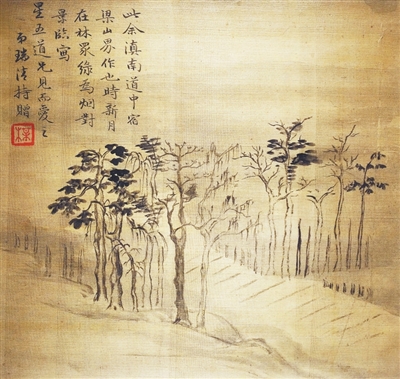 此余滇南道中宿
界山界作也時新月
在林眾綠為烟對
景臨寫
星五道兄見而愛之
即請持贈